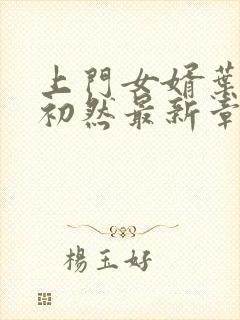 上門女婿葉
初然最新章
楊玉好